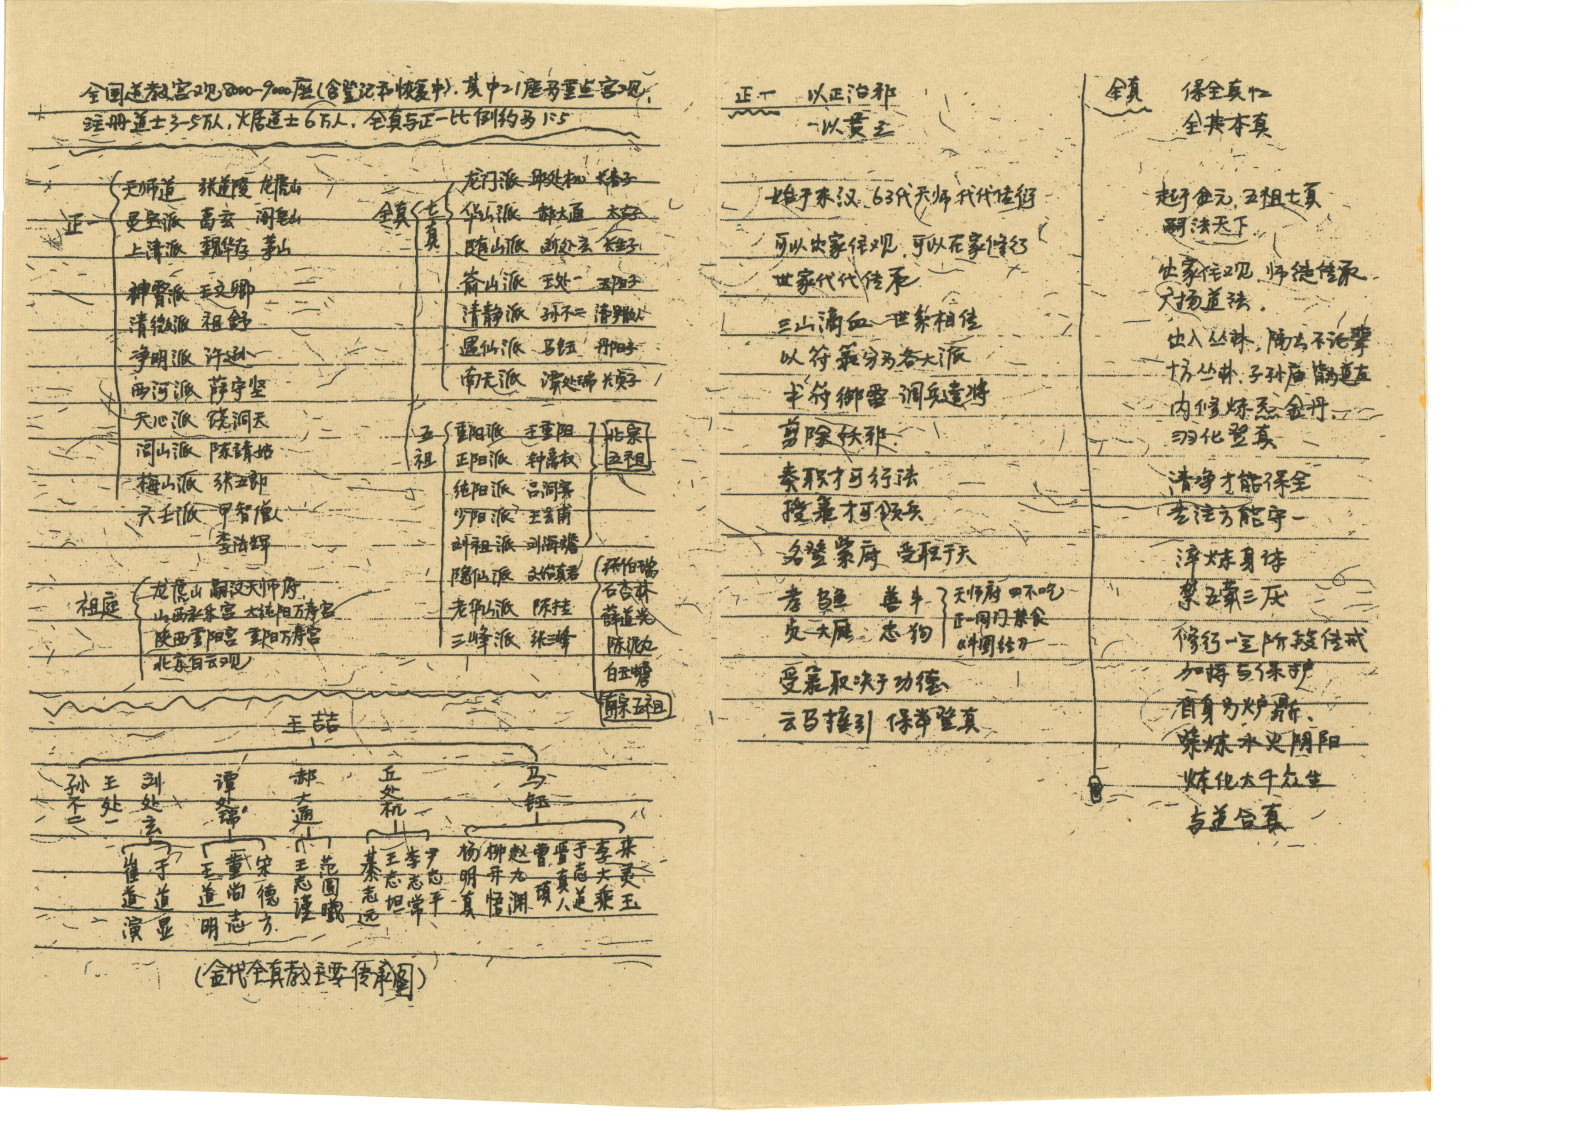 全国道教宫观8000-9000座(含登记和恢复中).其中21座为重点宫观.
注册道士3-5万人,火居道士6万人,全真与正一比例约为1:5
正一
天师道 张道陵 龙虎山
灵宝派 葛玄 阁皂山
上清派 魏华存 茅山
神霄派 王文卿
清微派 祖舒
净明派 许逊
西河派 萨守坚
天心派 饶洞天
闾山派 陈靖姑
梅山派 张五郎
天壬派 甲智僧人
李法辉
祖庭
龙虎山 嗣汉天师府
山西永乐宫 大纯阳万寿宫
陕西重阳宫 重阳万寿宫
北京白云观
全真 七真
龙门派 邱处机 长春子
华山派 郝大通 太古子
随山派 刘处玄 长生子
嵛山派 王处一 玉阳子
清静派 孙不二 清静散人
遇仙派 马钰 丹阳子
南无派 谭处瑞 长真子
五祖
重阳派 王重阳
正阳派 钟离权
纯阳派 吕洞宾
少阳派 王玄甫
刘祖派 刘海蟾
北宗五祖
隐仙派 文始真君
老华山派 陈抟
三峰派 张三峰
张伯瑞
石杏林
薛道光
陈泥丸
白玉蟾
南宗五祖
王喆
孙不二 王处一 刘处玄 谭处瑞 郝大通 丘处机 马钰
崔道演 于道显 王道明 董尚志 宋德方 王志谨 范圆曦 綦志远 王志坦 李志常 尹志平 杨明真 柳开悟 赵九渊 曹瑱 晋真人 于志道 李大乘 来灵玉
(金代全真教主要传承图)
正一 以正治邪
一以贯之
始于东汉,63代天师代代传衍
可以出家住观,可以在家修行
世家代代传承
三山滴血 世家相传
以符箓分为各大派
书符御雷 调兵遣将
剪除妖邪
奏职才可行法
授箓才可领兵
名登紫府 受职于天
孝 乌鱼 善牛
贞 大雁 忠狗
天师府 四不吃
正一同门禁食
受箓取决于功德
云马接引 保举登真
全真 保全真性
全其本真
起于金元,五祖七真
嗣法天下
出家住观,师徒传承
广扬道法.
十方丛林,子孙庙皆为道友
内修炼炁金丹,
羽化登真
清净才能保全
专注方能守一
淬炼身体
禁五荤三厌
修行一定阶段传戒
加持与保护
自身为炉鼎,
煅炼水火阴阳
炼化大千众生
与道合真